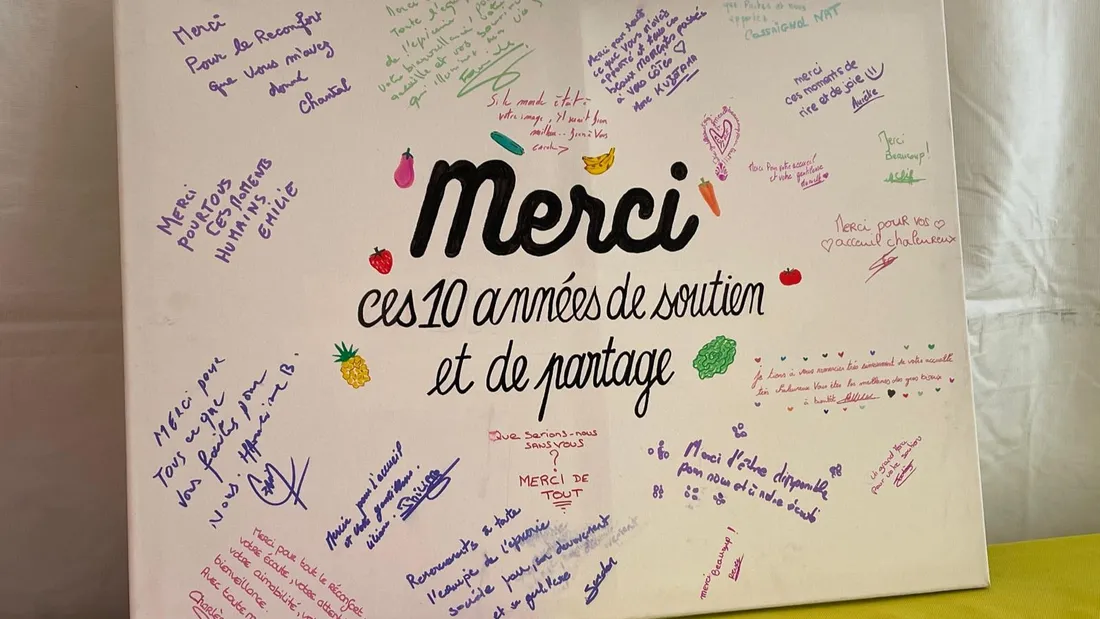 Merci
Pour le Reconfort
que vous m'avez
donné
Chantal
Merci
Toute l'équipe
de l'épicerie
votre bienveillance
et vos
qui illumine
Merci pour tout
ce que vous m'avez
apporté et tous ces
beaux moments passés
à vos côtés ♡
Mme KUZBTHA
que
apportés
CASSAIGNOL NAT
merci
ces moments de
rire et de joie !!!
Aurélie
Si le monde était à
votre image, il serait bien
meilleur... bien à vous
carole
Merci
ces 10 années de soutien
et de partage
Merci Pour votre accueil
et votre gentillesse
Merci
Beaucoup!
Merci pour vos ♡
♡ acceuil chaleureux
MERCI
POUR TOUS
CES MOMENTS
HUMAINS
EMILIE
je tiens à vous remercier très sincèrement de votre accueille
très chaleureux Vous êtes les meilleures des gros bisous
à bientôt
MERCI pour
Tous ce que
vous faites pour
Nous.
Merci pour l'accueil
et votre gentillesse.
Que serions-nous
SANS VOUS
?
MERCI DE
TOUT
Merci d'être disponible
pour nous et à notre écoute
Un grand merci
pour votre soutien
Merci pour tout le réconfort
votre écoute, votre attent
votre aimabilité,
bienveillance.
Avec toute m
Charlène
Remerciements à toute
l'équipe de l'épicerie
sociale pour son dévouement
et sa gentillesse
Sandra
merci Beaucoup !